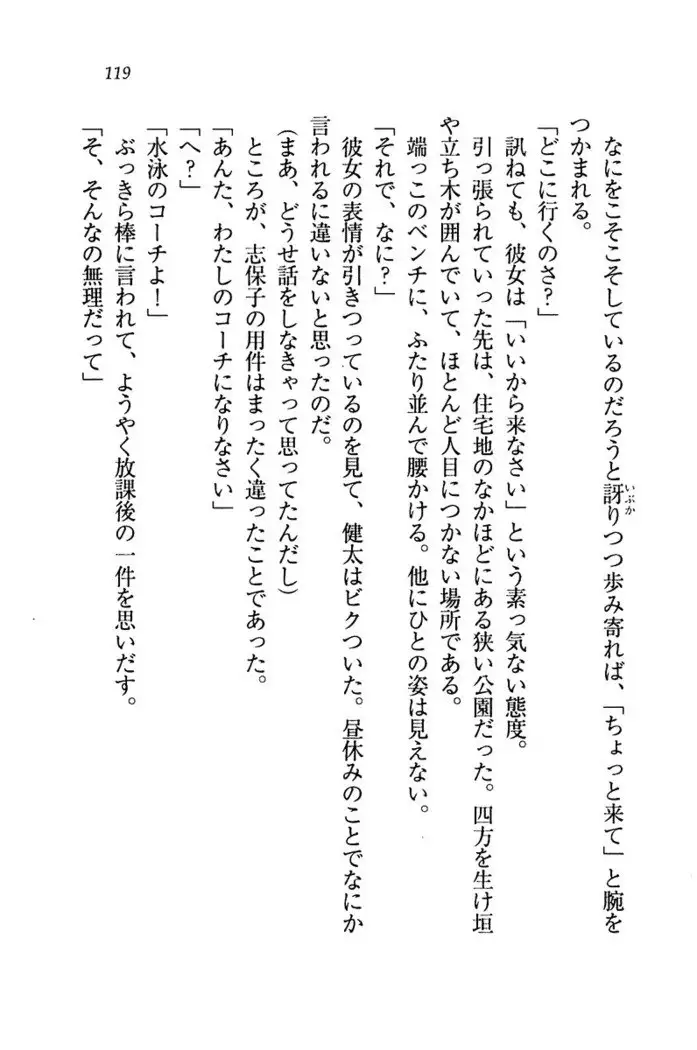 119
なにをこそこそしているのだろうと訝りつつ歩み寄れば、「ちょっと来て」と腕を
いぶか
つかまれる。
「どこに行くのさ？」
訊ねても、彼女は「いいから来なさい」という素っ気ない態度。
引っ張られていった先は、住宅地のなかほどにある狭い公園だった。四方を生け垣
や立ち木が囲んでいて、ほとんど人目につかない場所である。
端っこのベンチに、ふたり並んで腰かける。他にひとの姿は見えない。
「それで、なに？」
彼女の表情が引きつっているのを見て、健太はビクついた。昼休みのことでなにか
言われるに違いないと思ったのだ。
（まあ、どうせ話をしなきゃって思ってたんだし）
ところが、志保子の用件はまったく違ったことであった。
「あんた、わたしのコーチになりなさい」
「へ？」
「水泳のコーチよ！」
ぶっきら棒に言われて、ようやく放課後の一件を思いだす。
「そ、そんなの無理だって」